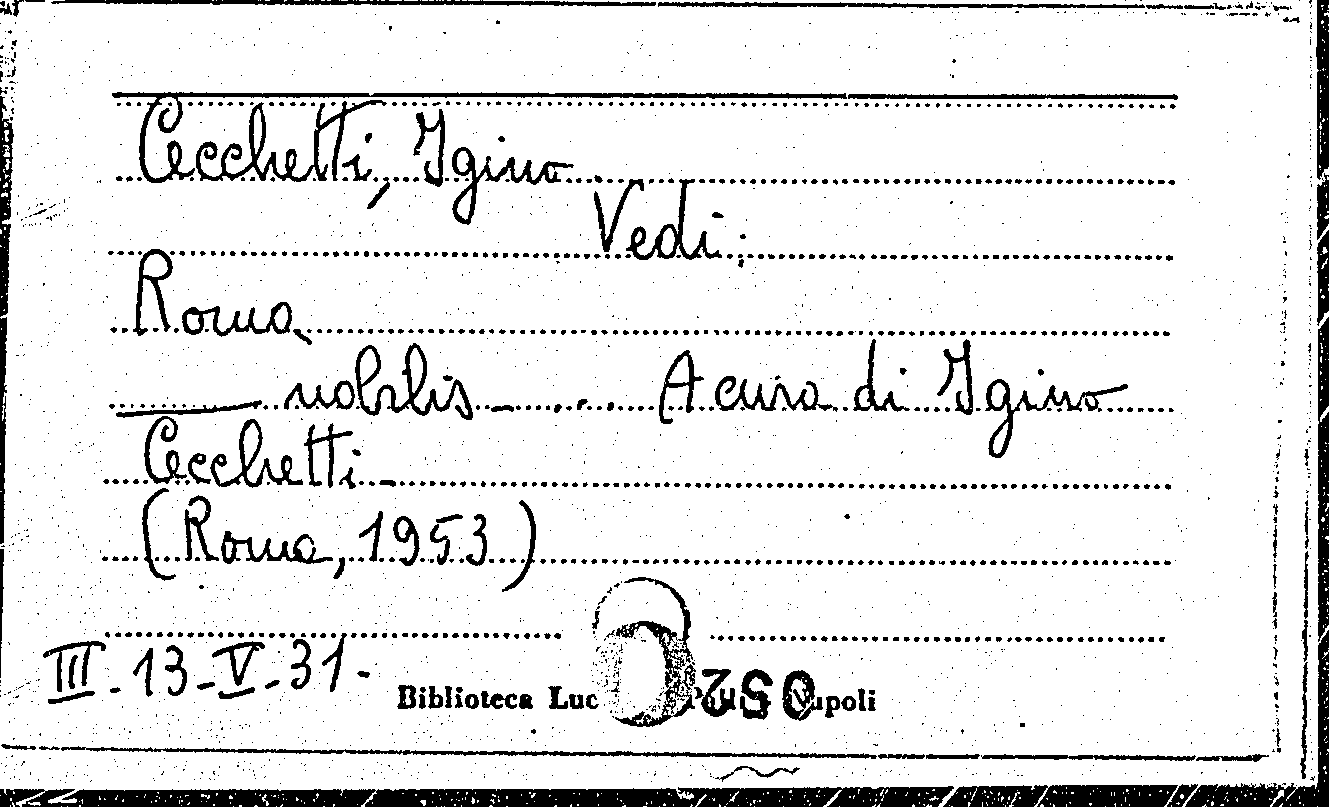 Cecchetti, Igino
Vedi:
Roma
—— nobilis - ... A cura di Igino
Cecchetti -
(Roma, 1953)
III - 13 - V - 31 -
Biblioteca Napoli